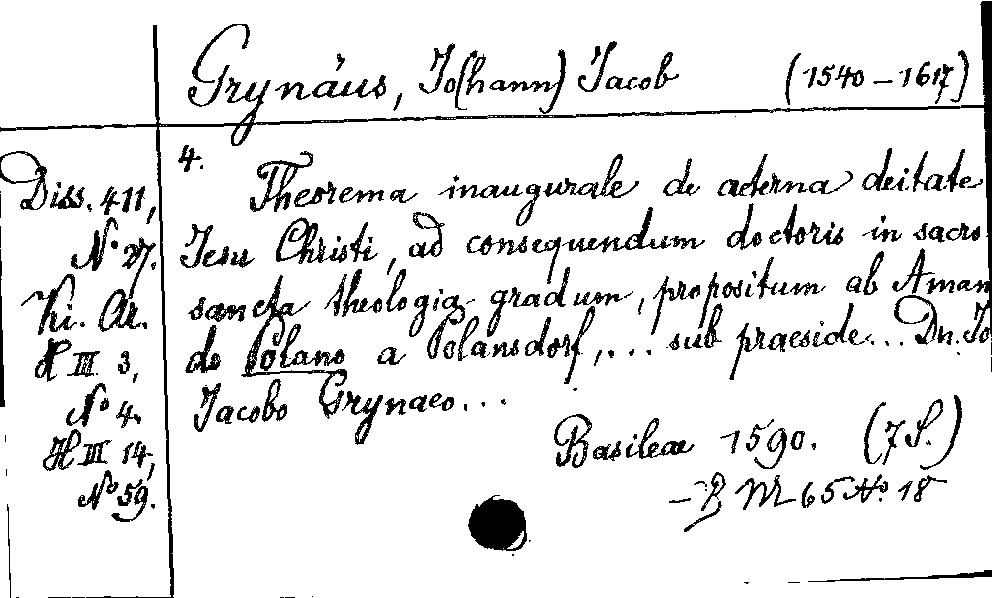 Grynäus, Jo(hann) Jacob (1540-1617)
Diss. 411,
No 27.
Ki. Ar.
H III 3,
No 4.
H III 14,
No 59.
4. Theorema inaugurale de aeterna deitate
Jesu Christi, ad consequendum doctoris in sacro
sancta theologia gradum, propositum ab Aman
do Polano a Polansdorf, ... sub praeside ... Dn. Jo
Jacobo Grynaeo ...
Basileae 1590. (7 S.)
65 No. 18